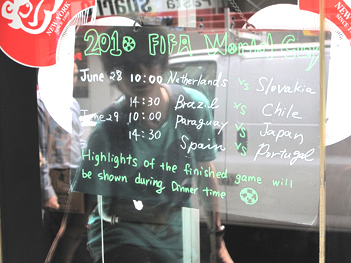 2010 FIFA World Cup
June 28 10:00 Netherlands vs Slovakia
14:30 Brazil vs Chile
June 29 10:00 Paraguay vs Japan
14:30 Spain vs Portugal
Highlights of the finished game will
be shown during Dinner time
NEW YORK